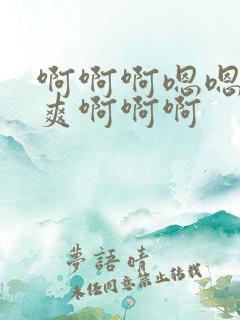 啊啊啊嗯嗯
爽啊啊啊
夢語晴
未经同意禁止转载